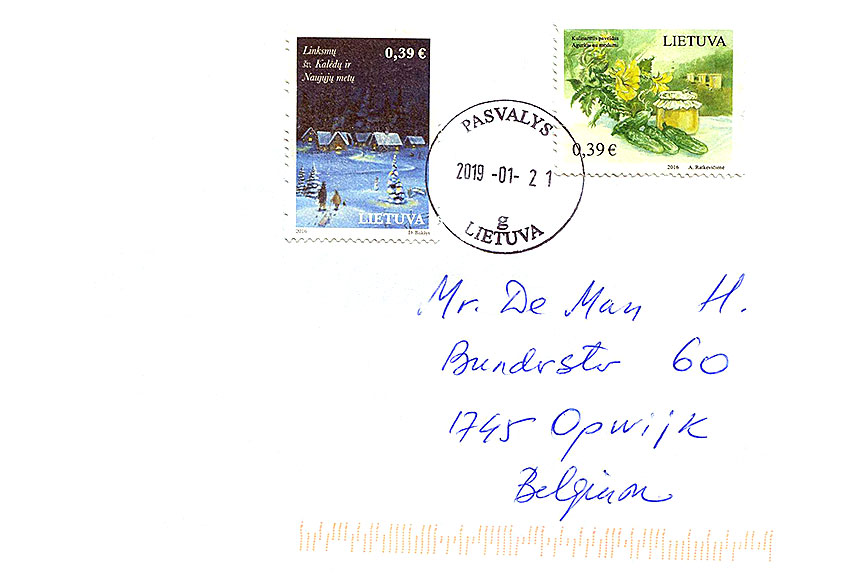 Linksmų
šv. Kalėdų ir
Naujųjų metų
0,39 €
LIETUVA
2016
D. Bukler
Kulinarinis paveldas
Agurkai su medumi
LIETUVA
0,39 €
2016
A. Ratkevičienė
PASVALYS
2019-01-21
g
LIETUVA
Mr. De Man H.
60
1745 Opwijk
Belgium